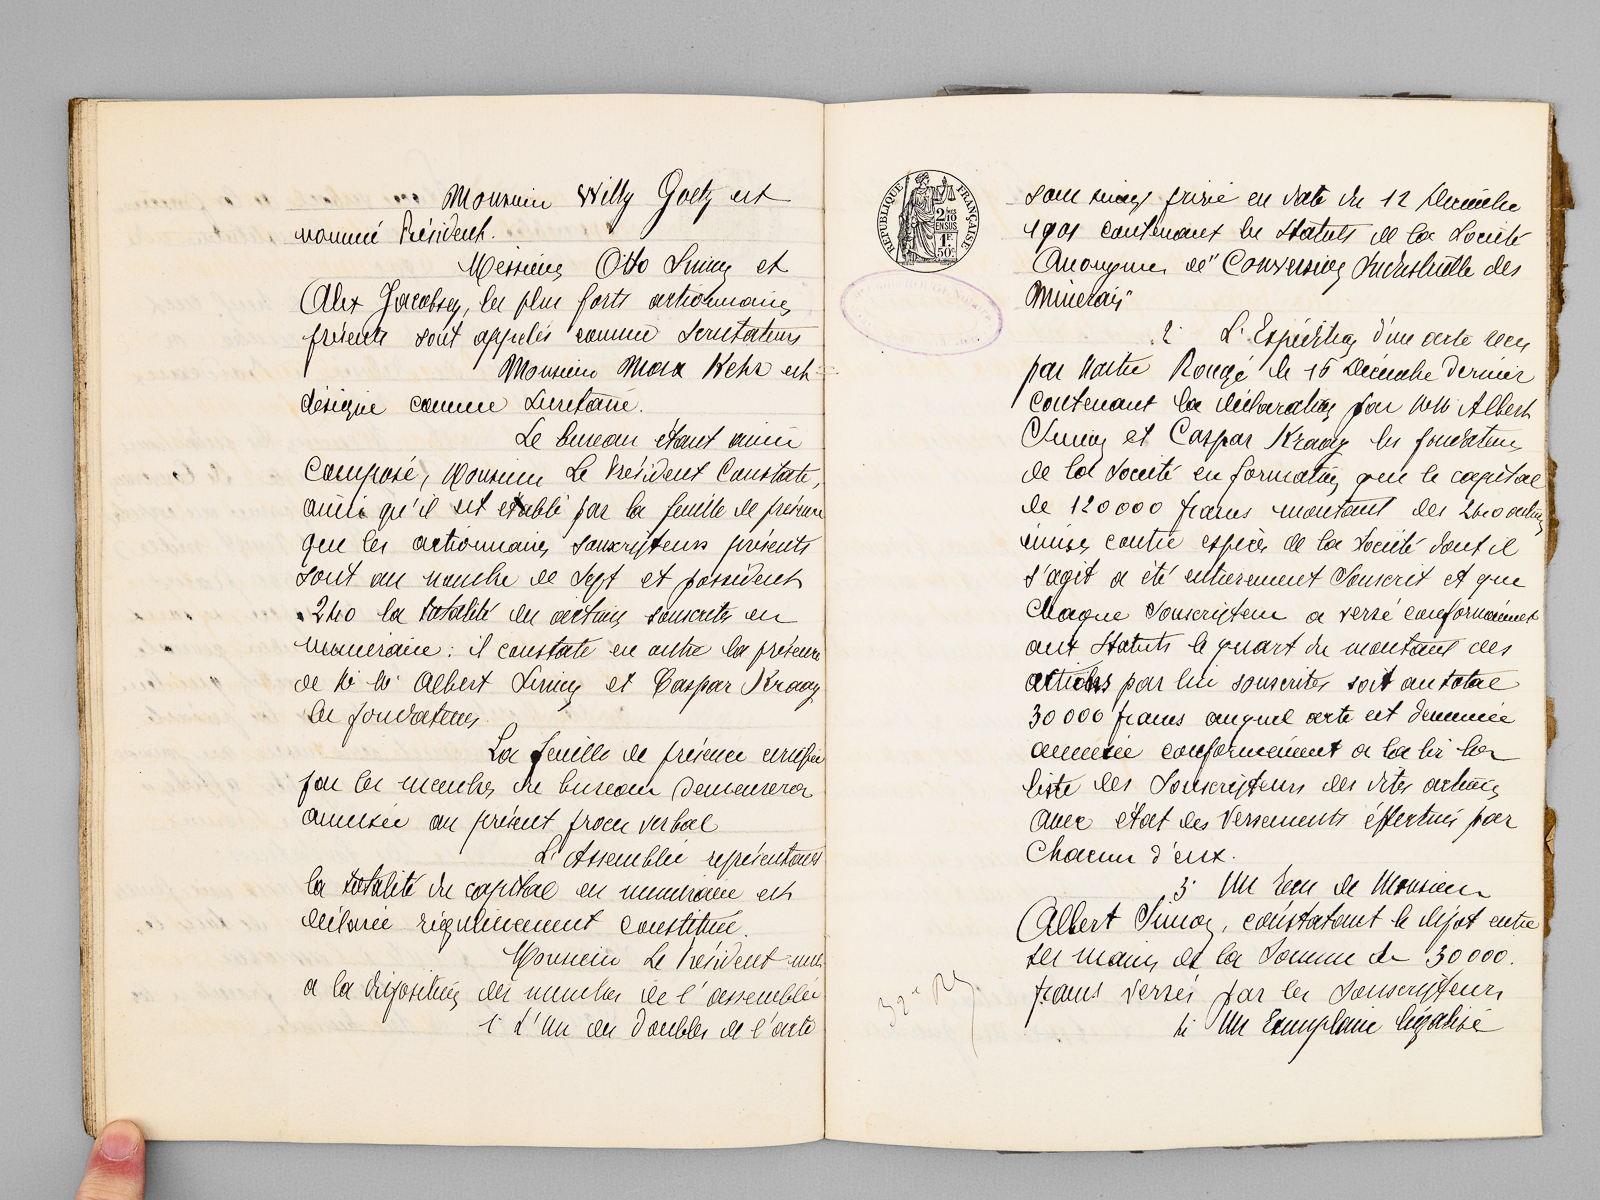 Monsieur Willy Goetz est
nommé Président.
Messieurs Otto Simon et
Alex Jacobsen, les plus forts actionnaires
présents sont appelés comme Scrutateurs
Monsieur Max Kehr est
désigné comme Secrétaire.
Le bureau étant ainsi
composé, Monsieur Le Président Constate,
ainsi qu'il est établi par la feuille de présence
que les actionnaires souscripteurs présents
sont au nombre de Sept et possèdent
240 la totalité des actions souscrites en
numéraire : il constate en outre la présence
de M M Albert Simon et Caspar Kraay
les fondateurs.
La feuille de présence certifiée
par les membres du bureau demeurera
annexée au présent procès verbal
L'Assemblée représentant
la totalité du capital en numéraire est
déclarée régulièrement constituée.
Monsieur Le Président met
a la disposition des membres de l'assemblée
1° L'Un des doubles de l'acte
RÉPUBLIQUE FRANÇAISE
2/10 EN SUS
1F 50c
sous seings privé en date du 12 Décembre
1901 contenant les Statuts de la Société
Anonyme de "Conversion Industrielle des
Minerais"
2° L'Expédition d'un acte reçu
par Maitre Rougé le 16 Décembre dernier
contenant la déclaration par MM Albert
Simon et Caspar Kraay les fondateurs
de la Société en formation que le capital
de 120000 francs montant des 240 actions
émises contre espèces de la Société dont il
s'agit a été entièrement Souscrit et que
Chaque Souscripteur a versé conformément
aux Statuts le quart du montant des
actions par lui souscrites soit au total
30000 francs auquel acte est demeurée
annexée conformément a la loi la
liste des Souscripteurs des dites actions
avec état des Versements éffectués par
Chacun d'eux.
3° Un Reçu de Monsieur
Albert Simon, constatant le dépot entre
ses mains de la Somme de 30000.
francs versés par les Souscripteurs
4° Un Exemplaire légalisé